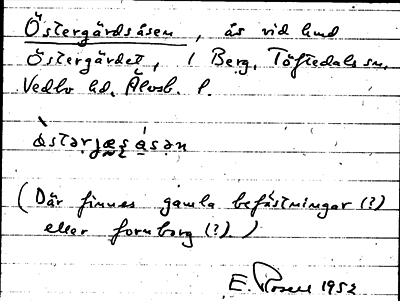 Östergärdsåsen, ås vid hmd
Östergärdet, i Berg, Töftedals sn,
Vedbo hd, Älvsb. l.
(Där finnes gamla befästningar (?)
eller fornborg (?).)
E. Rosell 1952